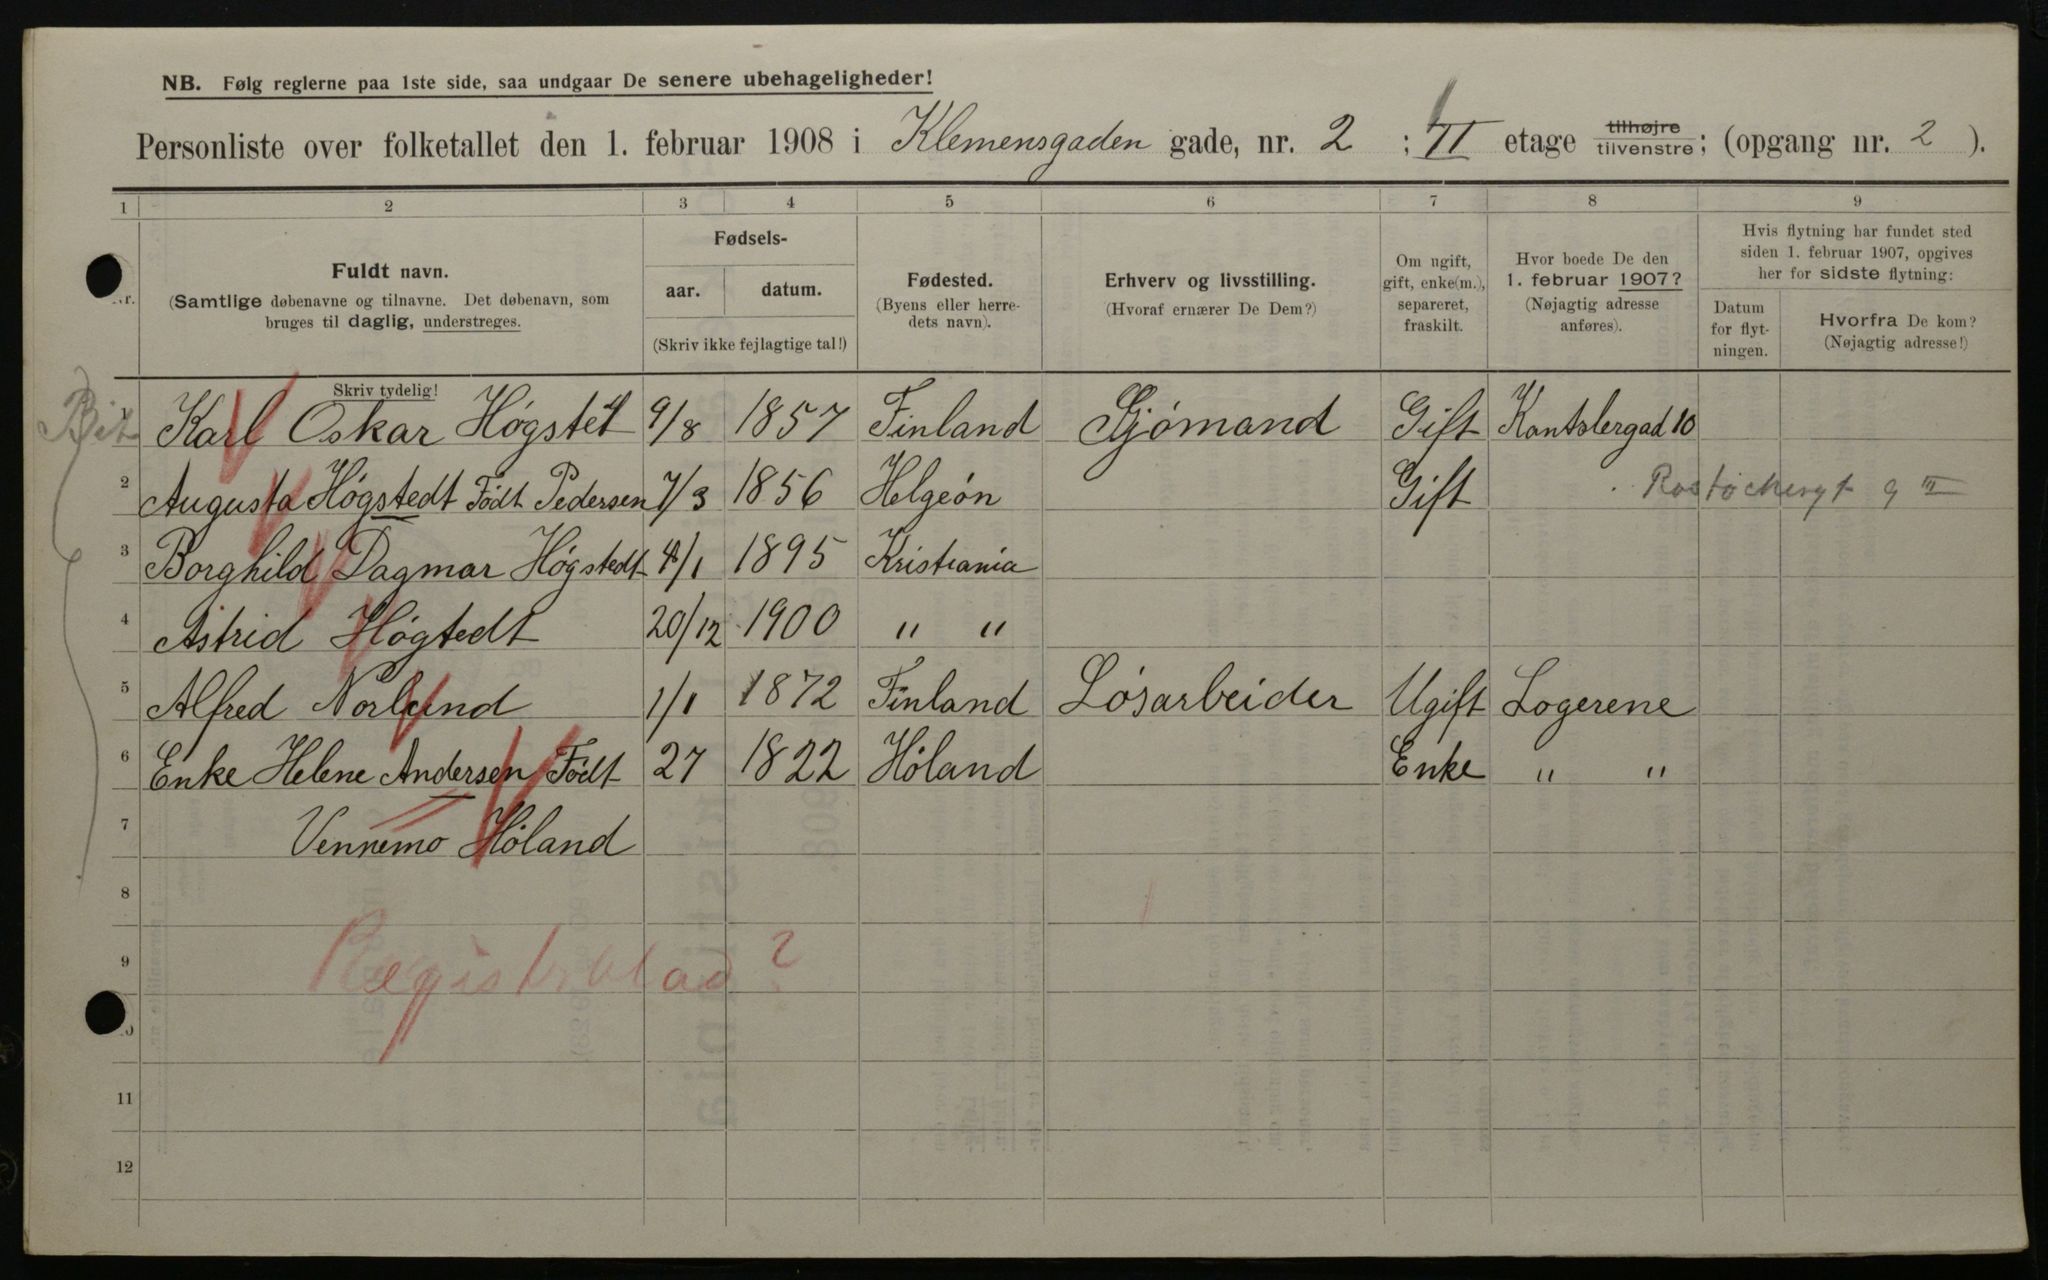 NB. Følg reglerne paa 1ste side, saa undgaar De senere ubehageligheder!
Personliste over folketallet den 1. februar 1908 i Klemensgaden gade, nr. 2 ; VI etage tilhøjre tilvenstre ; (opgang nr. 2 ).
1 2 3 4 5 6 7 8 9
Nr.
Fuldt navn.
(Samtlige døbenavne og tilnavne. Det døbenavn, som
bruges til daglig, understreges.
Skriv tydelig!
Fødsels-
aar. datum.
(Skriv ikke fejlagtige tal!)
Fødested.
(Byens eller herre-
dets navn).
Erhverv og livsstilling.
(Hvoraf ernærer De Dem?)
Om ugift,
gift, enke(m.),
separeret,
fraskilt.
Hvor boede De den
1. februar 1907?
(Nøjagtig adresse
anføres).
Hvis flytning har fundet sted
siden 1. februar 1907, opgives
her for sidste flytning:
Datum
for flyt-
ningen.
Hvorfra De kom?
(Nøjagtig adresse!)
1 Karl Oskar Høgstét 9/8 1857 Finland Sjómand Gift Kantslergad 10
2 Augusta Høgstedt Födt Pedersen 7/3 1856 Helgeón Gift 9 III
3 Borghild Dagmar Høgstedt 4/1 1895 Kristiania
4 Astrid Høgtedt 20/12 1900 " "
5 Alfred Norlund 1/1 1872 Finland Lósarbeider Ugift Logerene
6 Enke Helene Andersen Födt 27 1822 Hôland Enke " "
7 Vennemo Hôland
8
9 Registerblad?
10
11
12